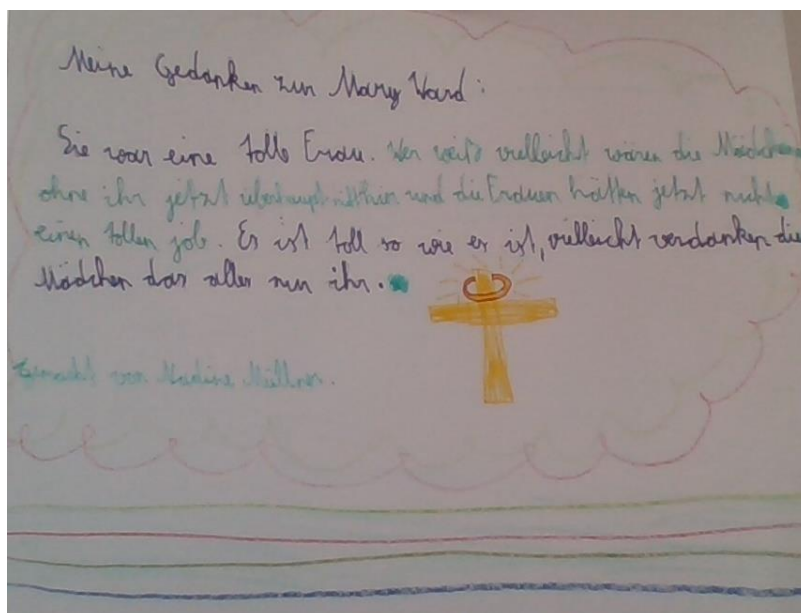 Meine Gedanken zur Mary Ward:
Sie war eine tolle Frau. Wer weiß vielleicht wären die Mädchen
ohne ihr jetzt überhaupt nit hier und die Frauen hätten jetzt nicht
einen tollen job. Es ist toll so wie es ist, vielleicht verdanken die
Mädchen das alles nur ihr.
Gemacht von Nadine Müllner.